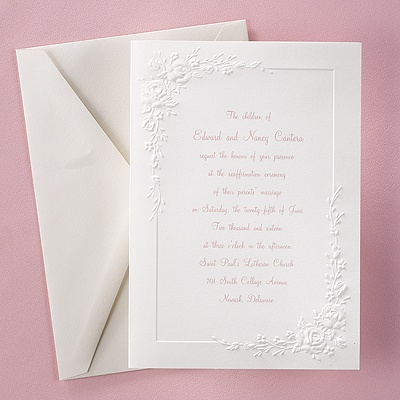 The children of
Edward and Nancy Cantera
request the honour of your presence
at the reaffirmation ceremony
of their parents' marriage
on Saturday, the twenty-fifth of June
Two thousand and sixteen
at three o'clock in the afternoon
Saint Paul's Lutheran Church
701 South College Avenue
Newark, Delaware